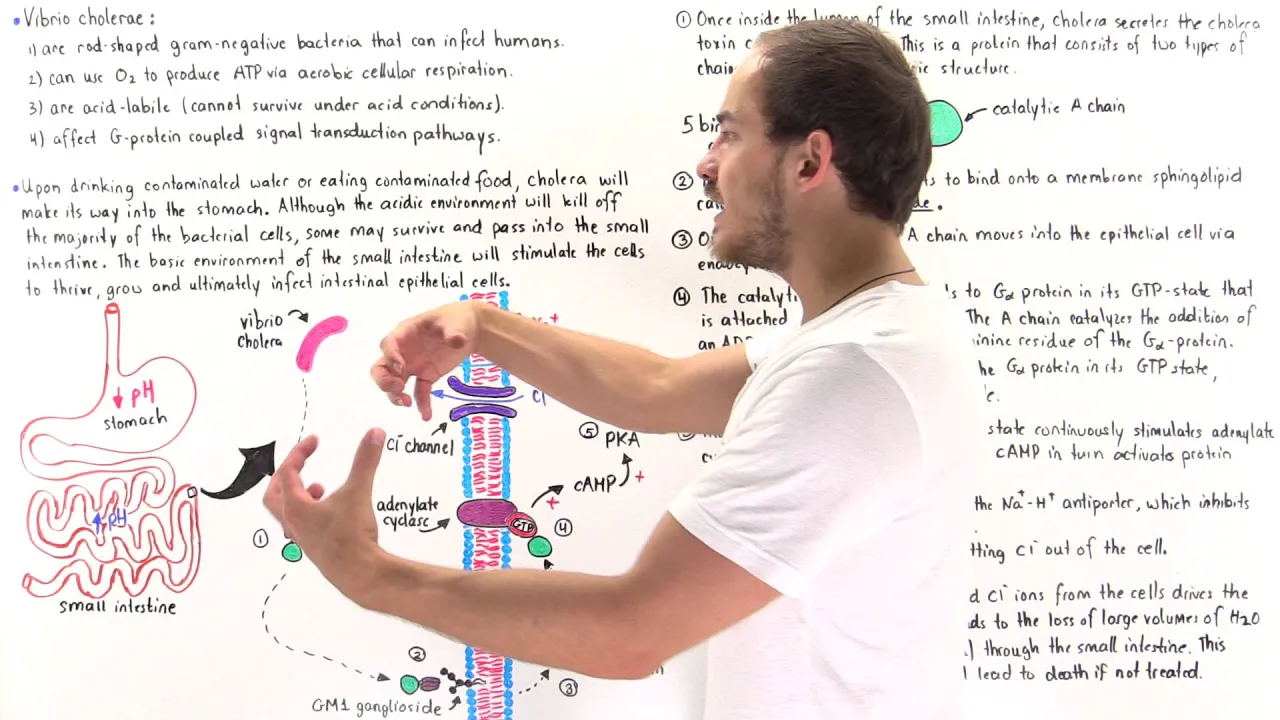 • Vibrio cholerae :
1) are rod-shaped gram-negative bacteria that can infect humans.
2) can use O2 to produce ATP via aerobic cellular respiration.
3) are acid-labile (cannot survive under acid conditions).
4) affect G-protein coupled signal transduction pathways.
• Upon drinking contaminated water or eating contaminated food, cholera will
make its way into the stomach. Although the acidic environment will kill off
the majority of the bacterial cells, some may survive and pass into the small
intenstine. The basic environment of the small intestine will stimulate the cells
to thrive, grow and ultimately infect intestinal epithelial cells.
↓ pH
stomach
↑ pH
small intestine
vibrio
cholera
Cl⁻ channel
Cl⁻
adenylate
cyclase
GTP
4
cAMP
+
+
5 PKA
1
2
GM1 ganglioside
3
1 Once inside the lumen of the small intestine, cholera secretes the cholera
toxin This is a protein that consists of two types of
chain structure.
catalytic A chain
5
2 to bind onto a membrane sphingolipid
3 A chain moves into the epithelial cell via
4 The to Gα protein in its GTP-state that
is attached The A chain catalyzes the addition of
an residue of the Gα-protein.
Gα protein in its GTP state,
state continuously stimulates adenylate
cAMP in turn activates protein
the Na+-H+ antiporter, which inhibits
Cl⁻ out of the cell.
Cl⁻ ions from the cells drives the
to the loss of large volumes of H2O
through the small intestine. This
lead to death if not treated.